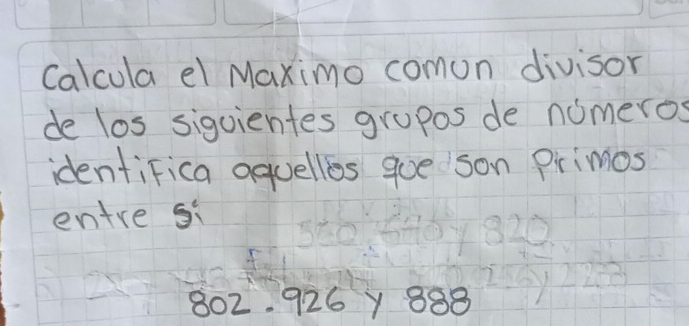 Calcula el Maximo comun divisor
de los siguientes grupos de números
identifica aquellos que son primos
entre sí
802.926 y 888